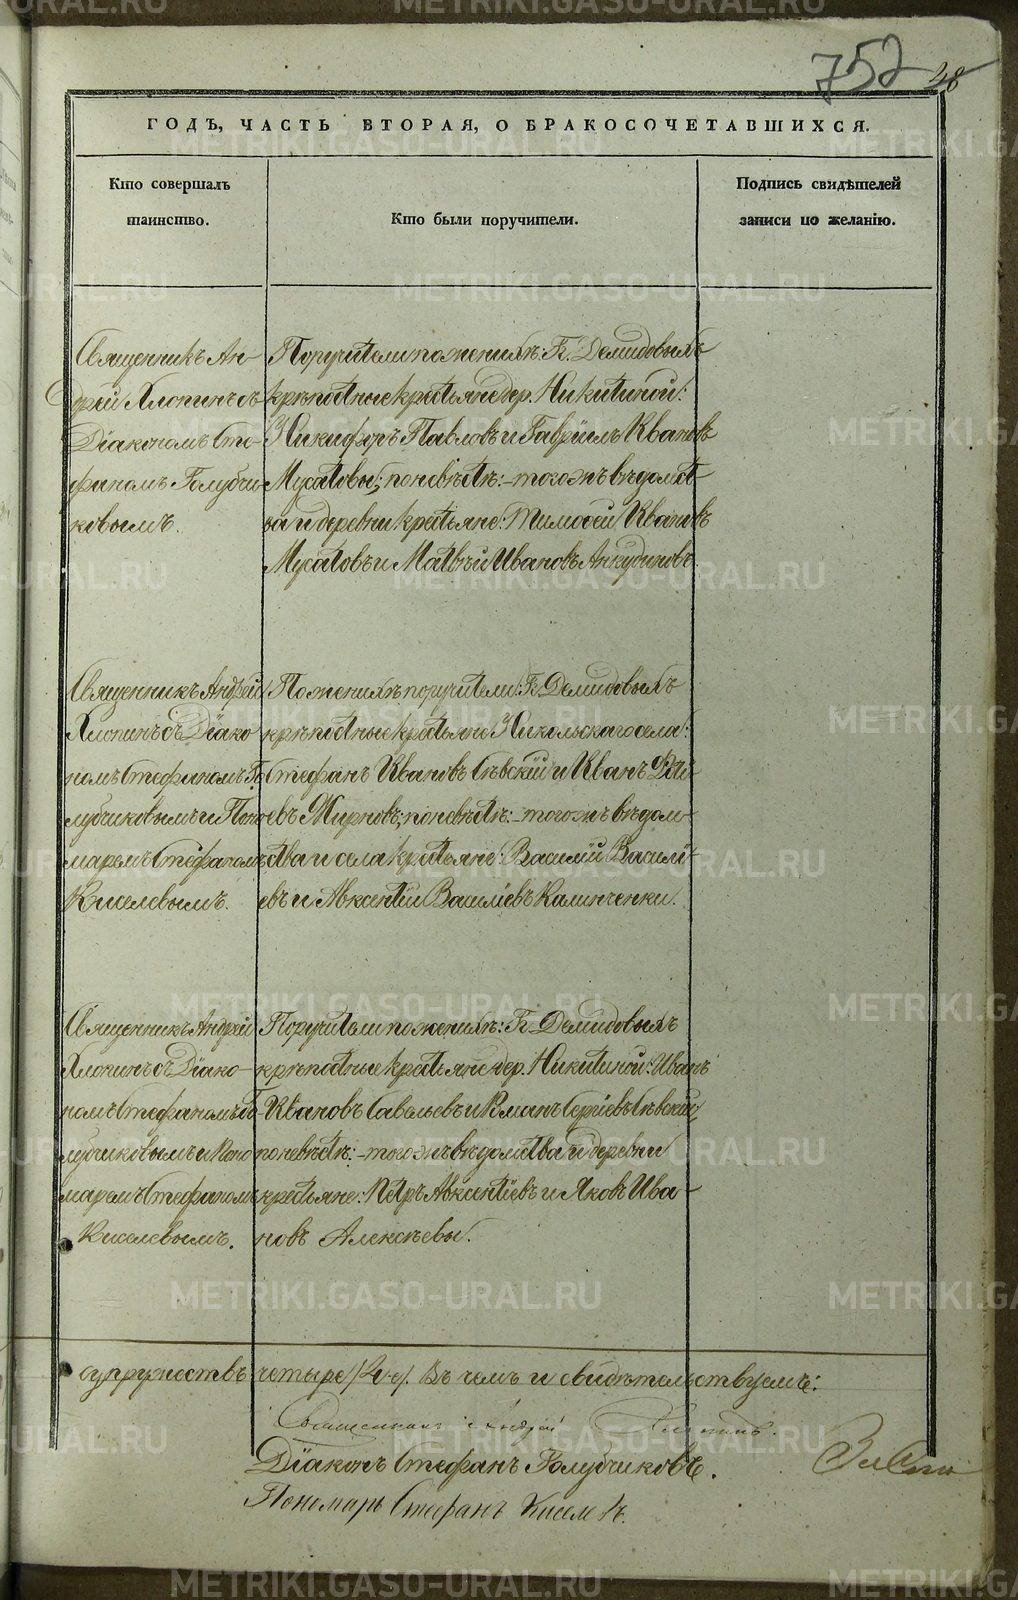 752 48
ГОДЪ, ЧАСТЬ ВТОРАЯ, О БРАКОСОЧЕТАВШИХСЯ.
Кто совершалъ
таинство.
Кто были поручители.
Подпись свидѣтелей
записи по желанію.
Священникъ Ан-
дрей Хлопинъ съ
Діакономъ Сте-
фаномъ Голубчи
ковымъ.
Поручители по женихѣ: Гг. Демидовыхъ
крѣпостные крестьяне дер. Никитиной:
Никифоръ Павловъ и Гавріилъ Ивановъ
Мусатовы; по невѣстѣ: тогожъ вѣдомст-
ва и деревни крестьяне: Тимофей Ивановъ
Мусатовъ и Матвѣй Ивановъ Анкудиновъ.
Священникъ Андрей
Хлопинъ съ Діако
номъ Стефаномъ Го
лубчиковымъ и Поно
маремъ Стефаномъ
Киселевымъ.
По женихѣ поручители: Гг. Демидовыхъ
крѣпостные крестьяне Никольскаго села:
Стефанъ Ивановъ Сѣвскій и Иванъ
евъ Жирновъ; по невѣстѣ: тогожъ вѣдом-
ства и села крестьяне: Василій Василі-
евъ и Авксентій Василіевъ Калинченки.
Священникъ Андрей
Хлопинъ съ Діако-
номъ Стефаномъ Го-
лубчиковымъ и Поно
маремъ Стефаномъ
Киселевымъ.
Поручители по женихѣ: Гг. Демидовыхъ
крѣпостные крестьяне дер. Никитиной: Иванъ
Ивановъ Савельевъ и Романъ Сергіевъ Сѣвскій;
по невѣстѣ: тогожъ вѣдомства и деревни
крестьяне: Петръ Авксентіевъ и Яковъ Ива-
новъ Алексѣевы.
супружествъ четыре /4-е/. Въ чемъ и свидѣтельствуемъ:
Священникъ Андрей Хлопинъ.
Діаконъ Стефанъ Голубчиковъ.
Пономарь Стефанъ Киселевъ.
METRIKI.GASO-URAL.RU